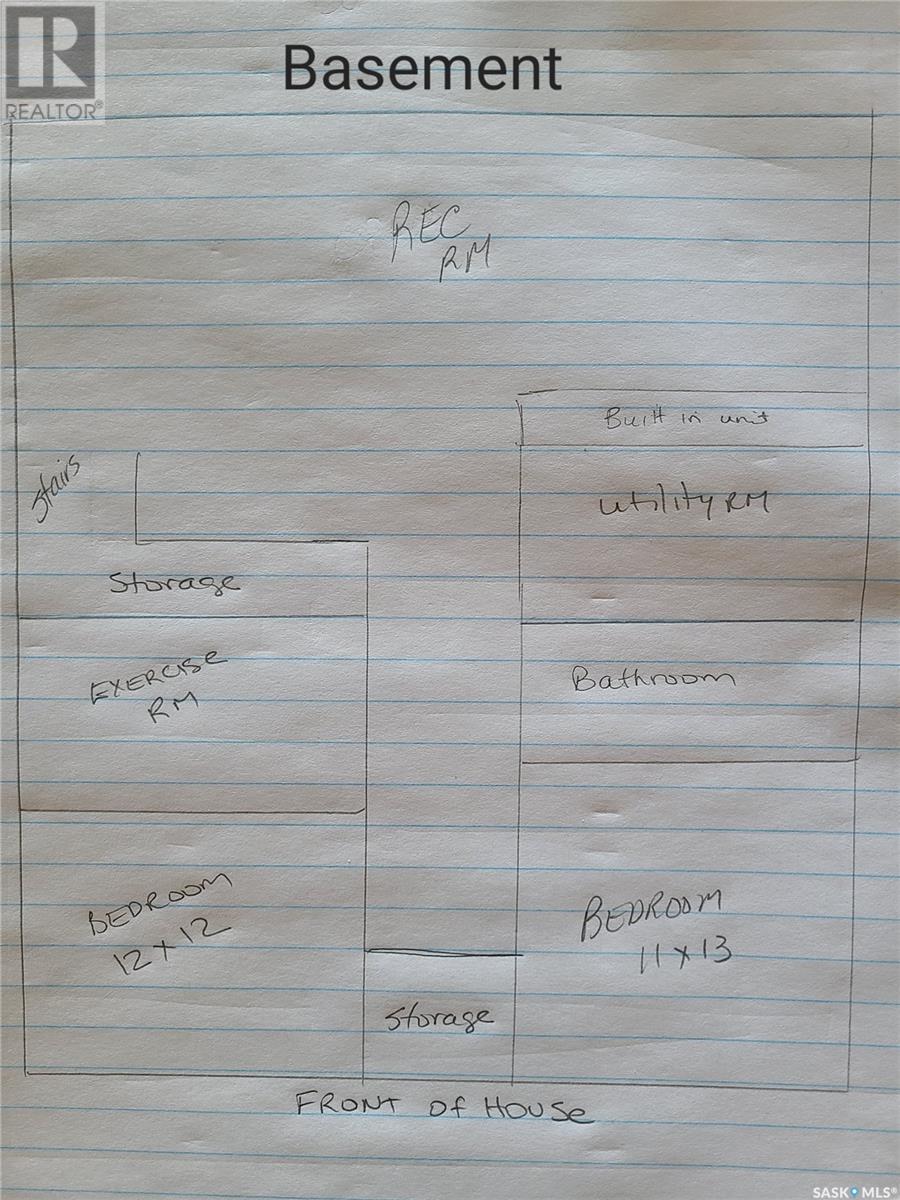 REALTOR®
Basement
REC
RM
Built in unit
Stairs
Utility RM
Storage
EXERCISE
RM
Bathroom
BEDROOM
12 x 12
BEDROOM
11 x 13
Storage
FRONT of HOUSE
SASK MLS®